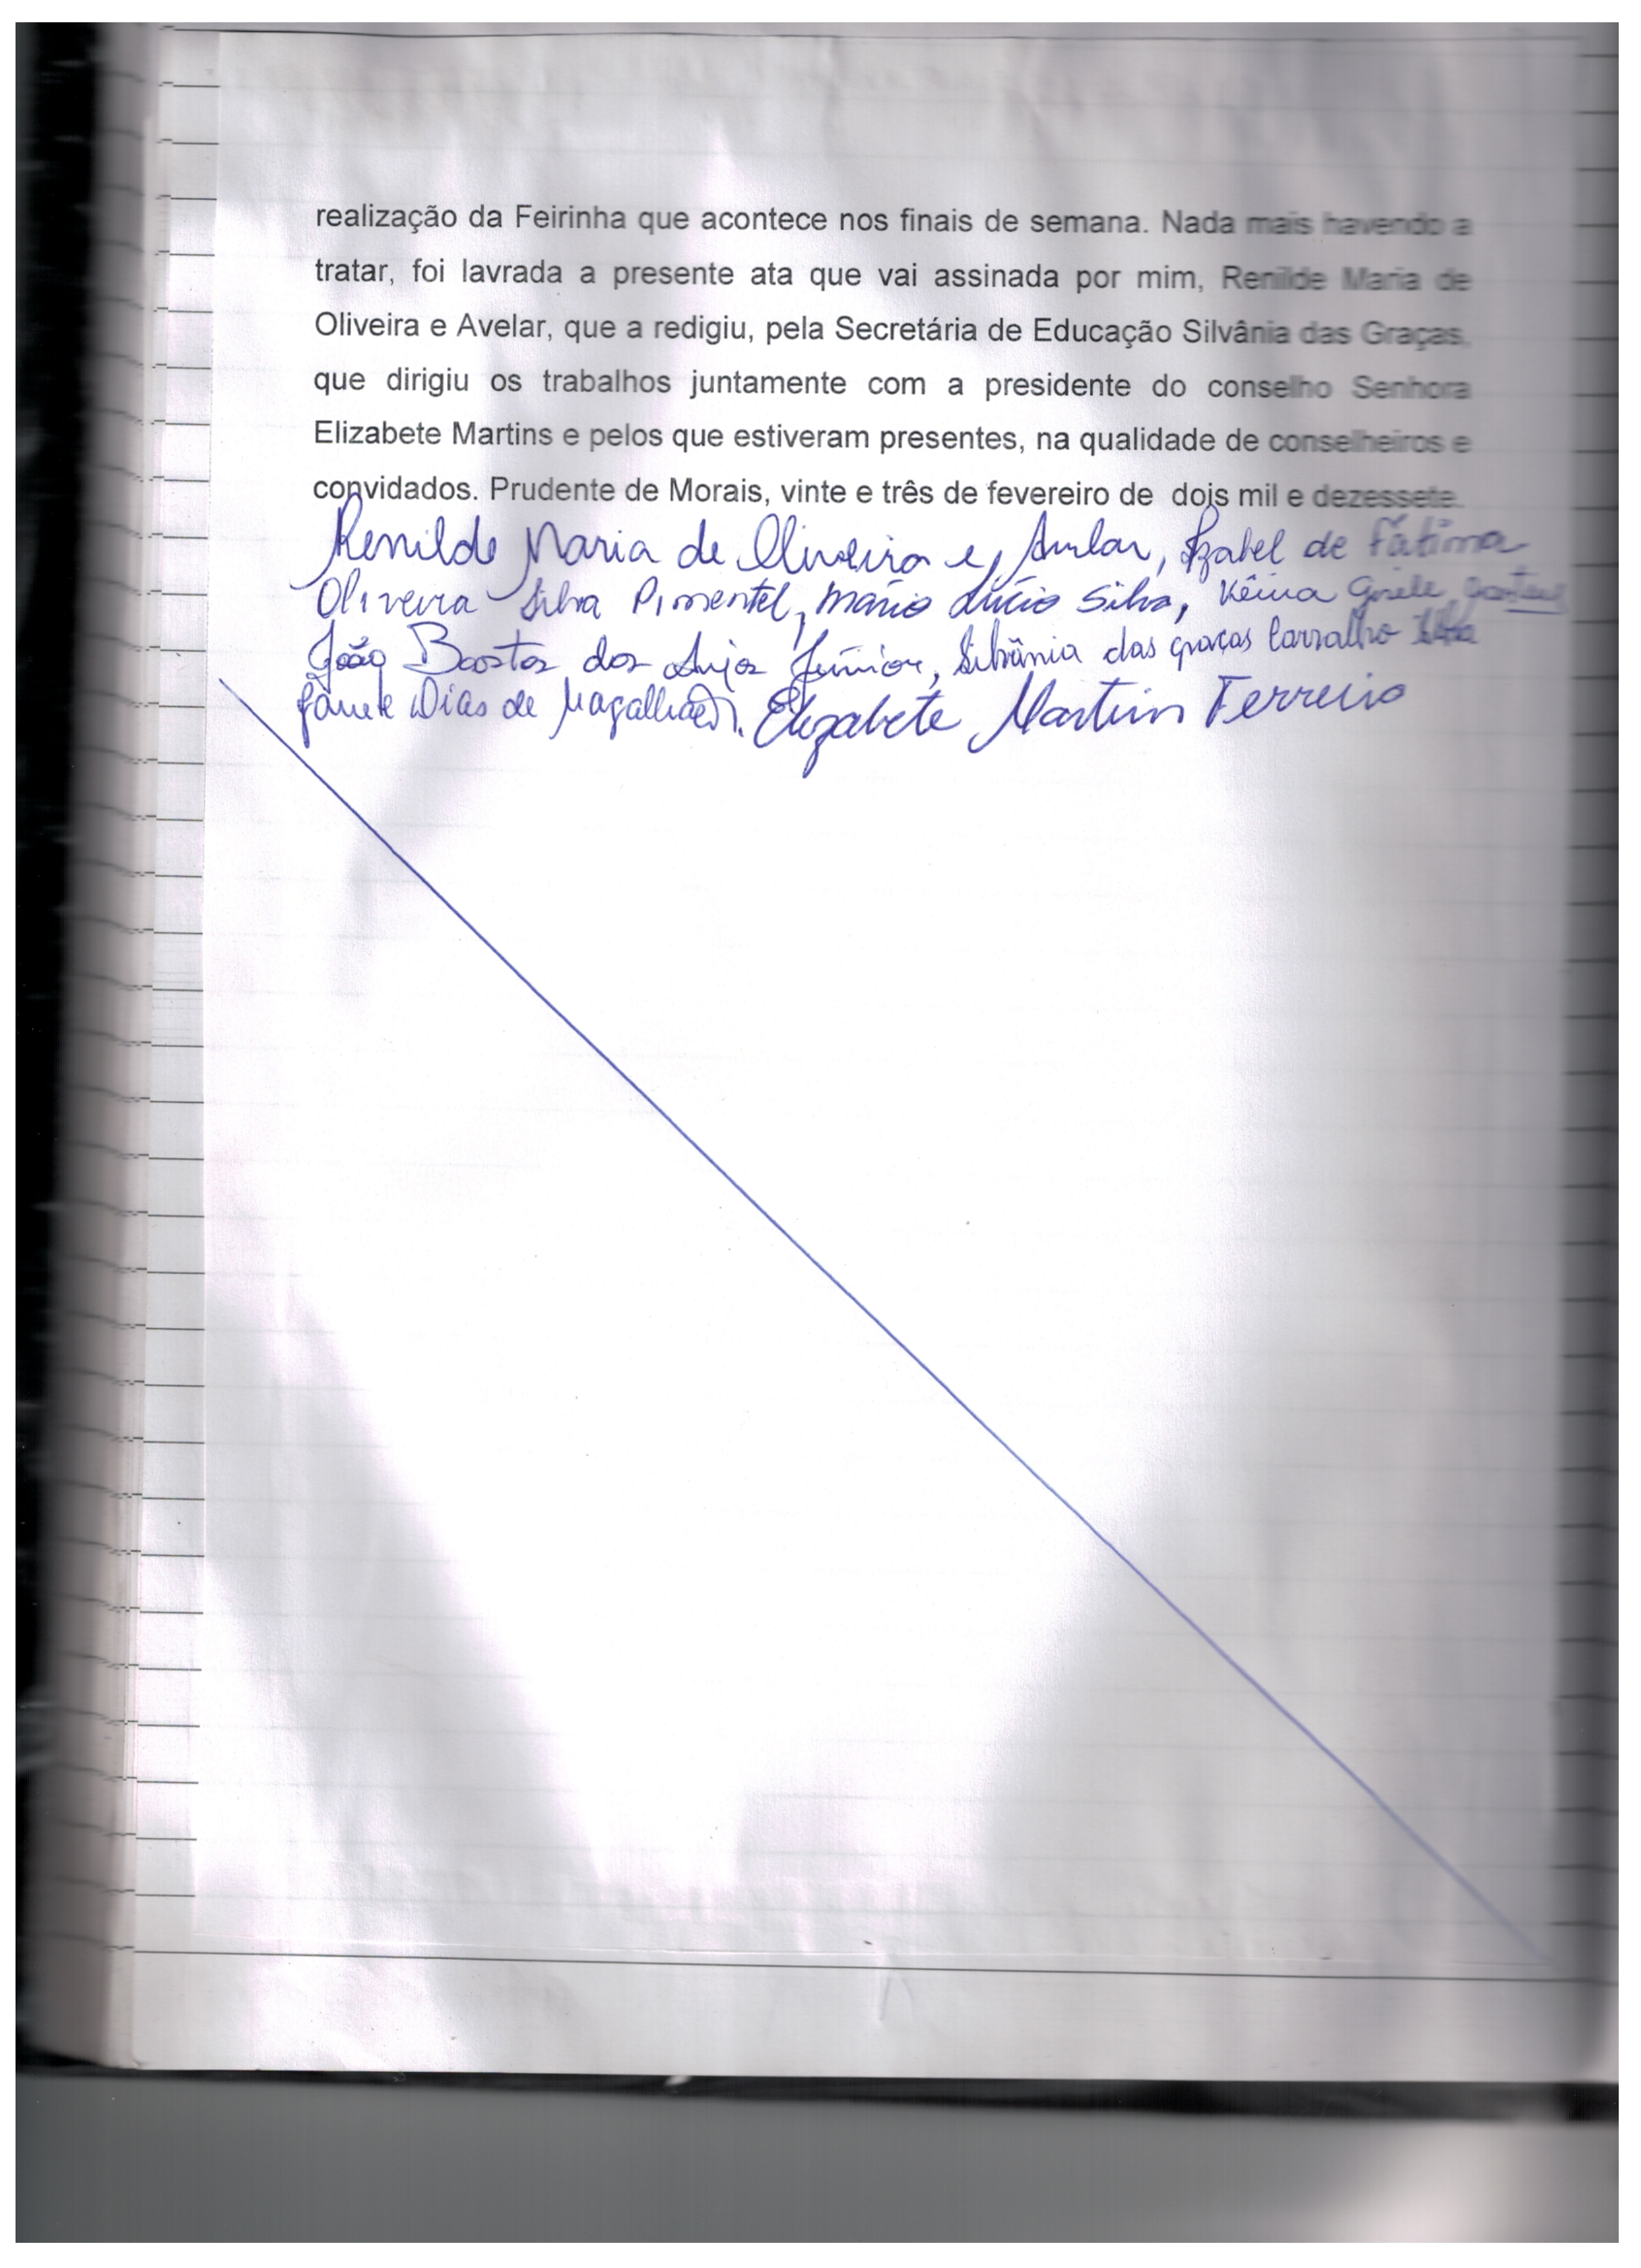 realização da Feirinha que acontece nos finais de semana. Nada mais havendo a
tratar, foi lavrada a presente ata que vai assinada por mim, Renilde Maria de
Oliveira e Avelar, que a redigiu, pela Secretária de Educação Silvânia das Graças,
que dirigiu os trabalhos juntamente com a presidente do conselho Senhora
Elizabete Martins e pelos que estiveram presentes, na qualidade de conselheiros e
convidados. Prudente de Morais, vinte e três de fevereiro de dois mil e dezessete.
Renilde Maria de Oliveira e Avelar, Izabel de Fátima
Oliveira Silva Pimentel, Mário Lúcio Silva, Kêina Gisele
João Bastos dos Anjos Júnior, Silvânia das graças Carvalho
Janete Dias de Magalhães. Elizabete Martins Ferreira